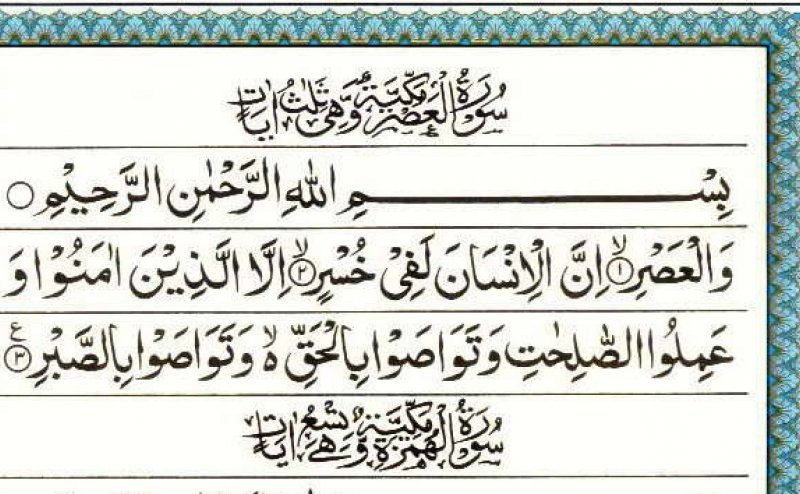 سُوْرَةُ الْعَصْرِ مَكِّيَّةٌ وَّهِىَ ثَلٰثُ اٰيَاتٍ
بِسْمِ اللّٰهِ الرَّحْمٰنِ الرَّحِيْمِ ○
وَالْعَصْرِ ۙ﴿۱﴾ اِنَّ الْاِنْسَانَ لَفِىْ خُسْرٍ ۙ﴿۲﴾ اِلَّا الَّذِيْنَ اٰمَنُوْا وَ
عَمِلُوا الصّٰلِحٰتِ وَتَوَاصَوْا بِالْحَقِّ ۙ وَتَوَاصَوْا بِالصَّبْرِ ﴿۳﴾ ع
سُوْرَةُ الْهُمَزَةِ مَكِّيَّةٌ وَّهِىَ تِسْعُ اٰيَاتٍ